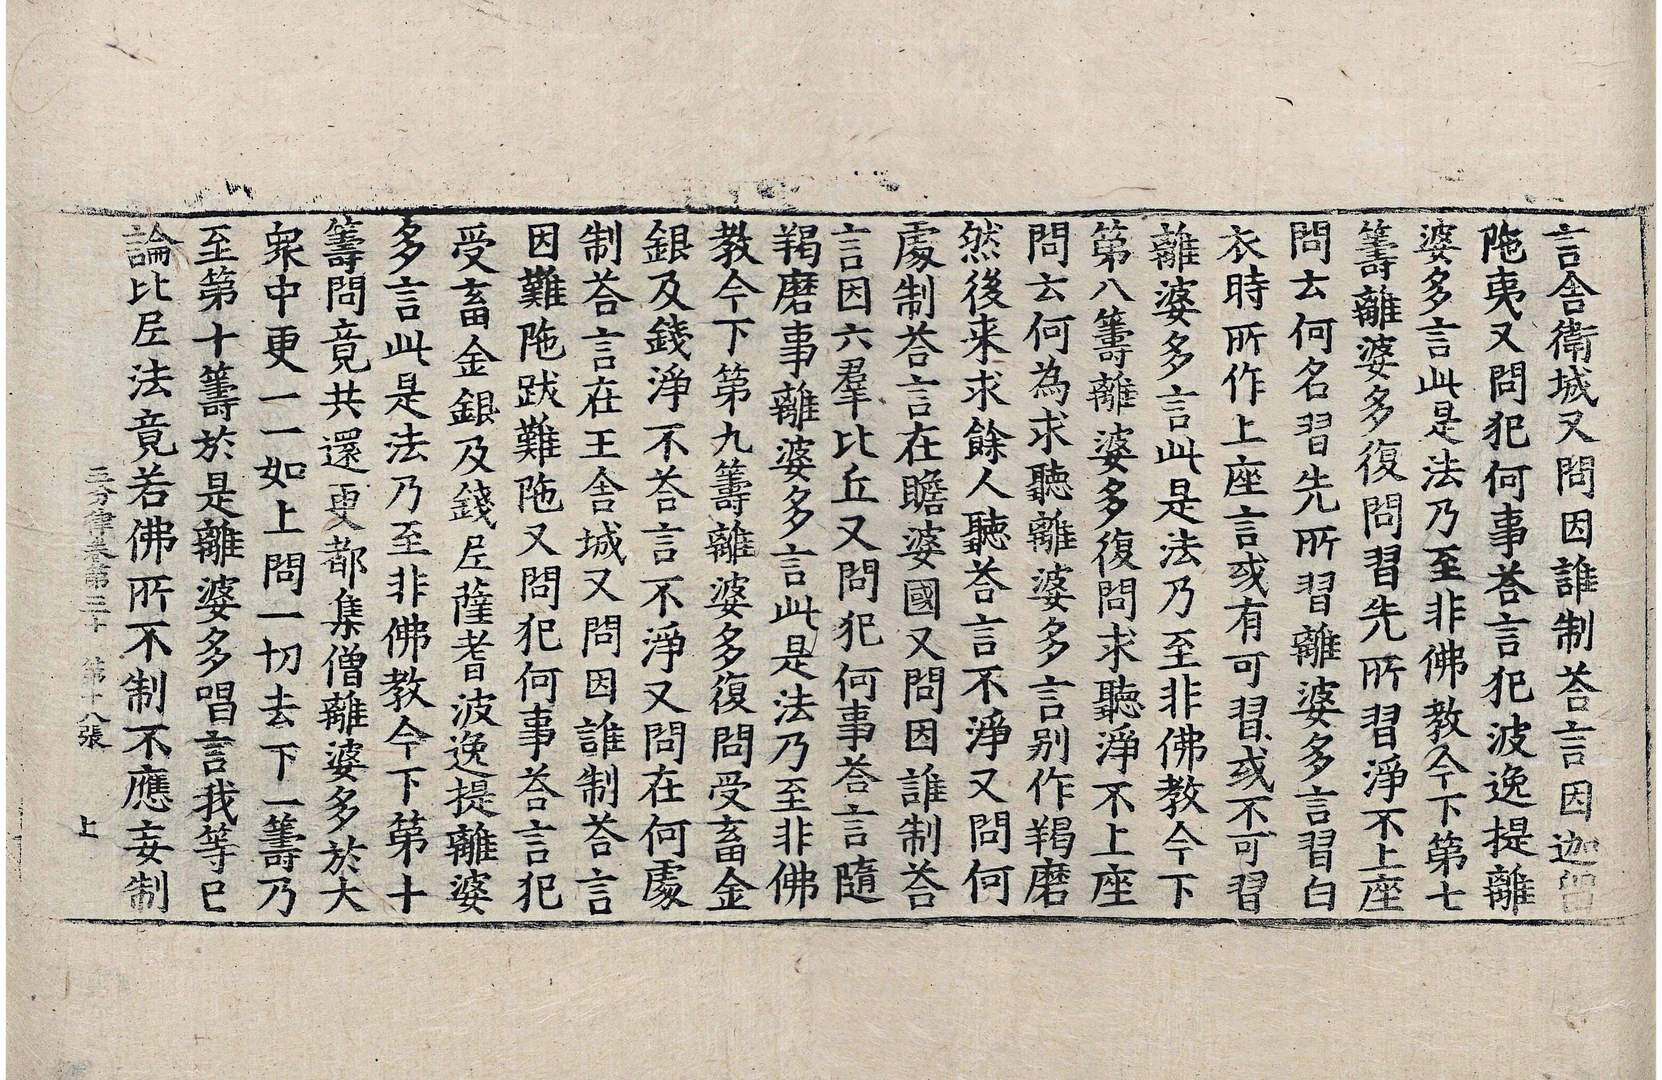 言舍衛城又問因誰制荅言因迦留
陁夷又問犯何事荅言犯波逸提離
婆多言此是法乃至非佛教今下第七
籌離婆多復問習先所習淨不上座
問云何名習先所習離婆多言習白
衣時所作上座言或有可習或不可習
離婆多言此是法乃至非佛教今下
第八籌離婆多復問求聽淨不上座
問云何為求聽離婆多言別作羯磨
然後来求餘人聽荅言不淨又問何
處制荅言在瞻婆國又問因誰制荅
言因六羣比丘又問犯何事荅言隨
羯磨事離婆多言此是法乃至非佛
教今下第九籌離婆多復問受畜金
銀及錢淨不荅言不淨又問在何處
制荅言在王舍城又問因誰制荅言
因難陁跋難陁又問犯何事荅言犯
受畜金銀及錢尼薩耆波逸提離婆
多言此是法乃至非佛教今下第十
籌問竟共還更都集僧離婆多於大
衆中更一一如上問一切去下一籌乃
至第十籌於是離婆多唱言我等已
論比尼法竟若佛所不制不應妄制
五分律卷第三十 第十八張 上